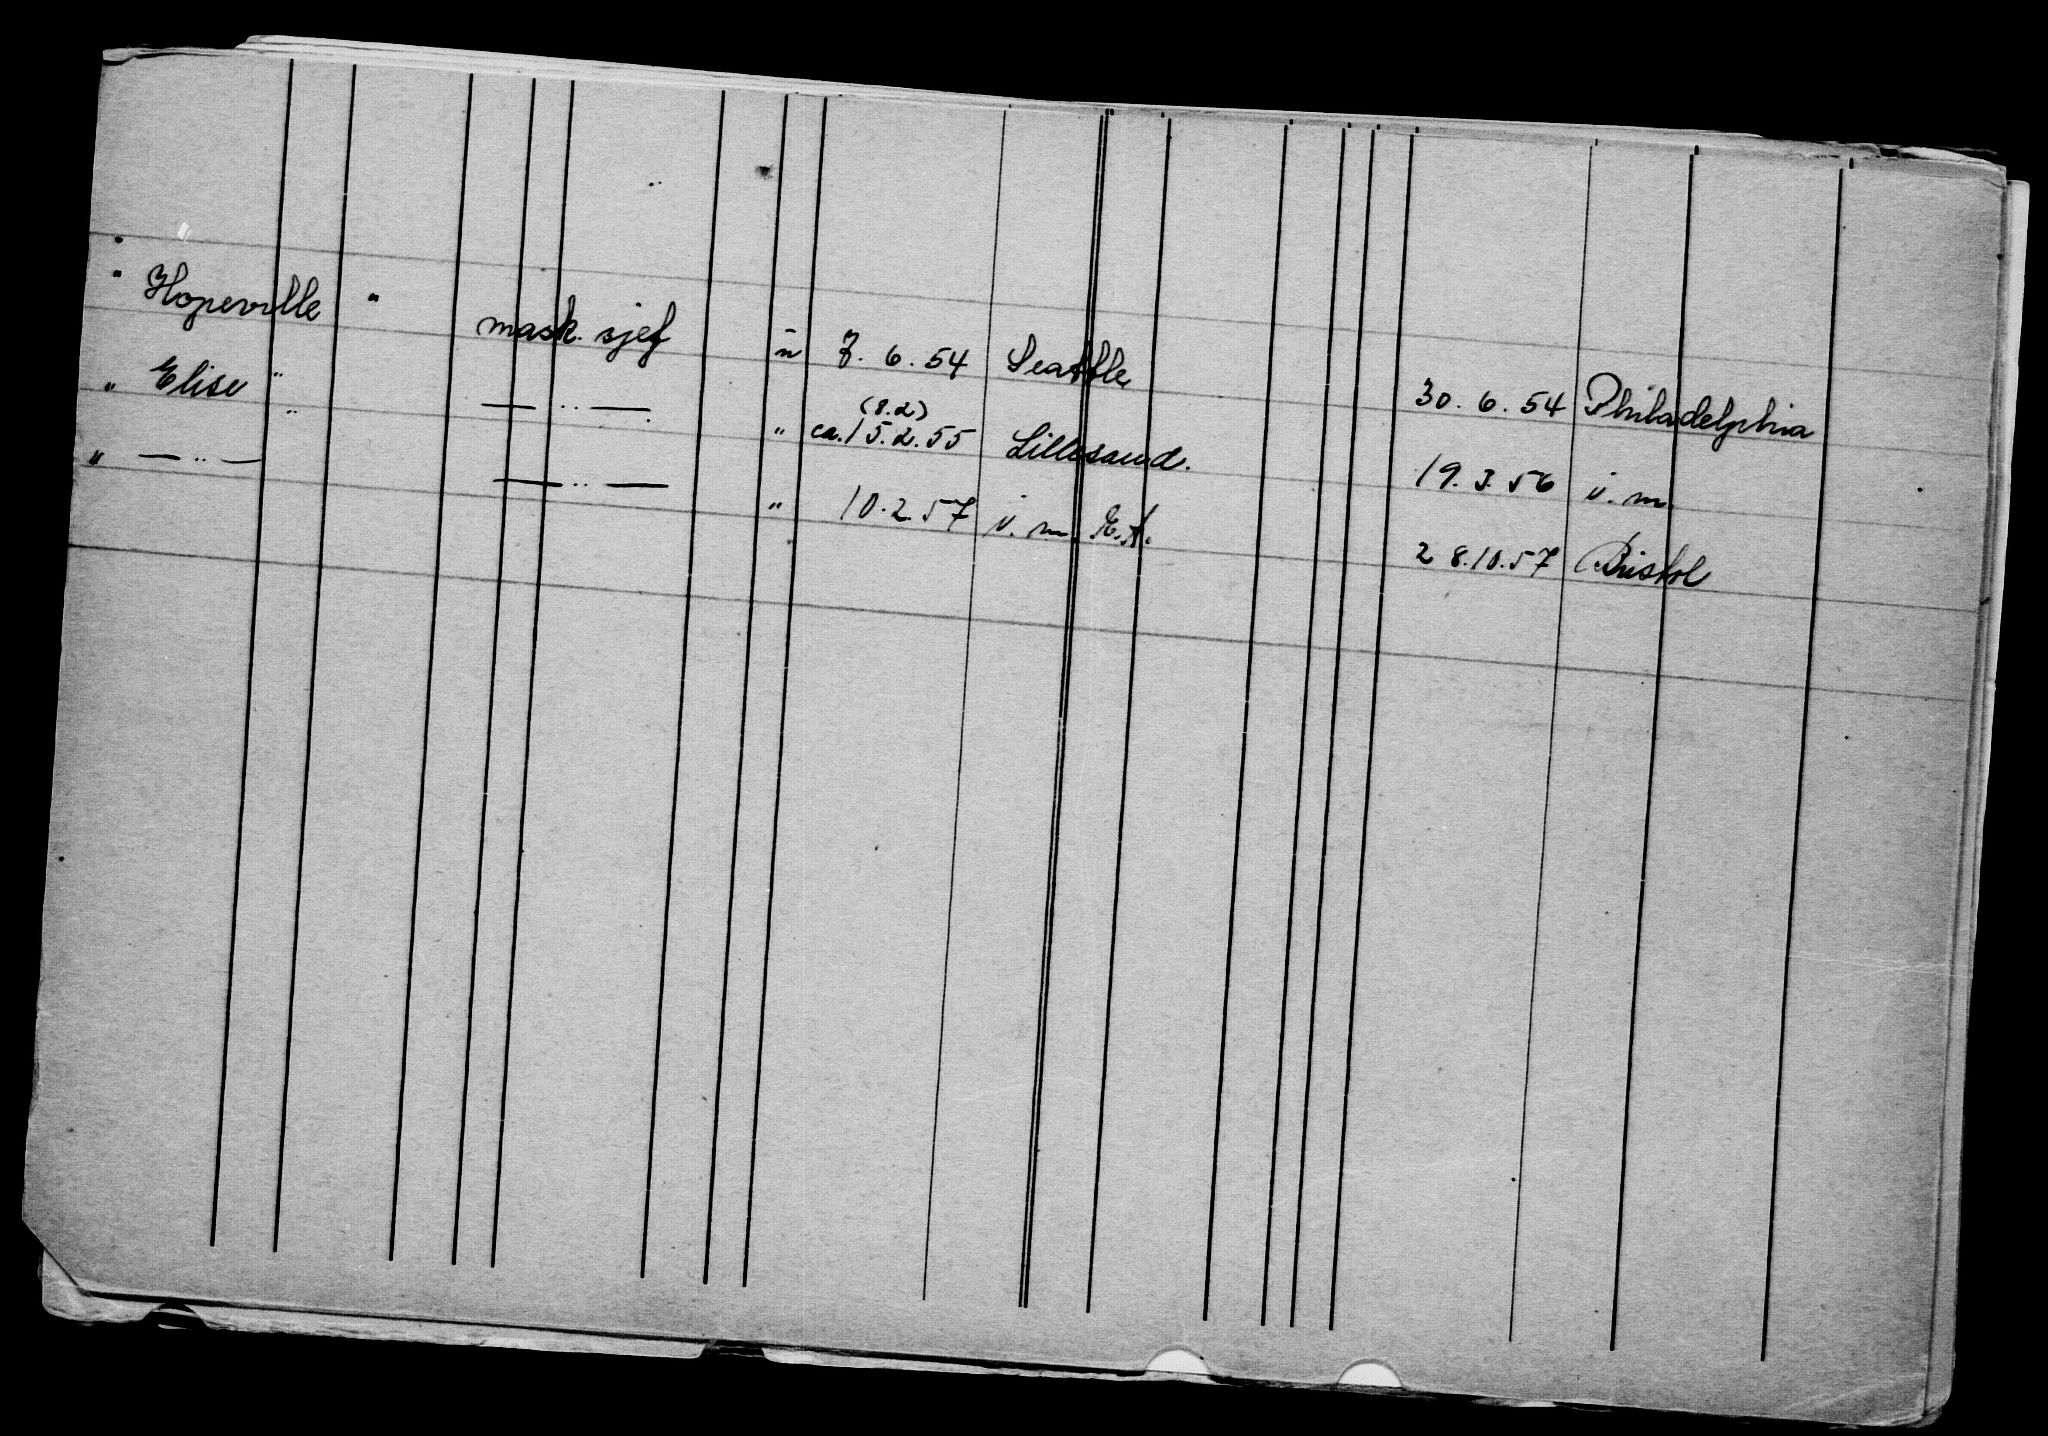 " Hopeville " mask. sjef " 7. 6. 54 Seattle 30. 6. 54 Philadelphia
" Elise " — " — " (8.2) ca. 15. 2. 55 Lillesand. 19. 3. 56 i. m.
" — " — — " — " 10. 2. 57 i. m. E.A. 28. 10. 57 Bristol